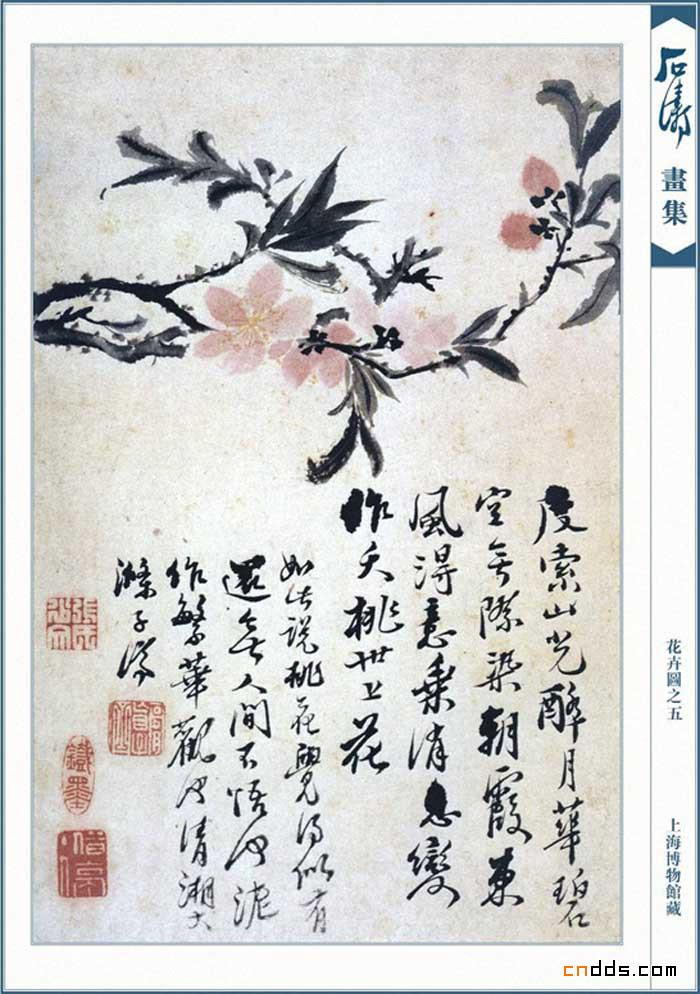 石濤
畫集
度索山光醉月華碧
空無際染朝霞東
風得意乘消息變
作夭桃世上花
如此說桃花覺得似有
還無人間不悟也泥
作繁華觀也清湘大
滌子濟
花卉圖之五
上海博物館藏
cndds.com